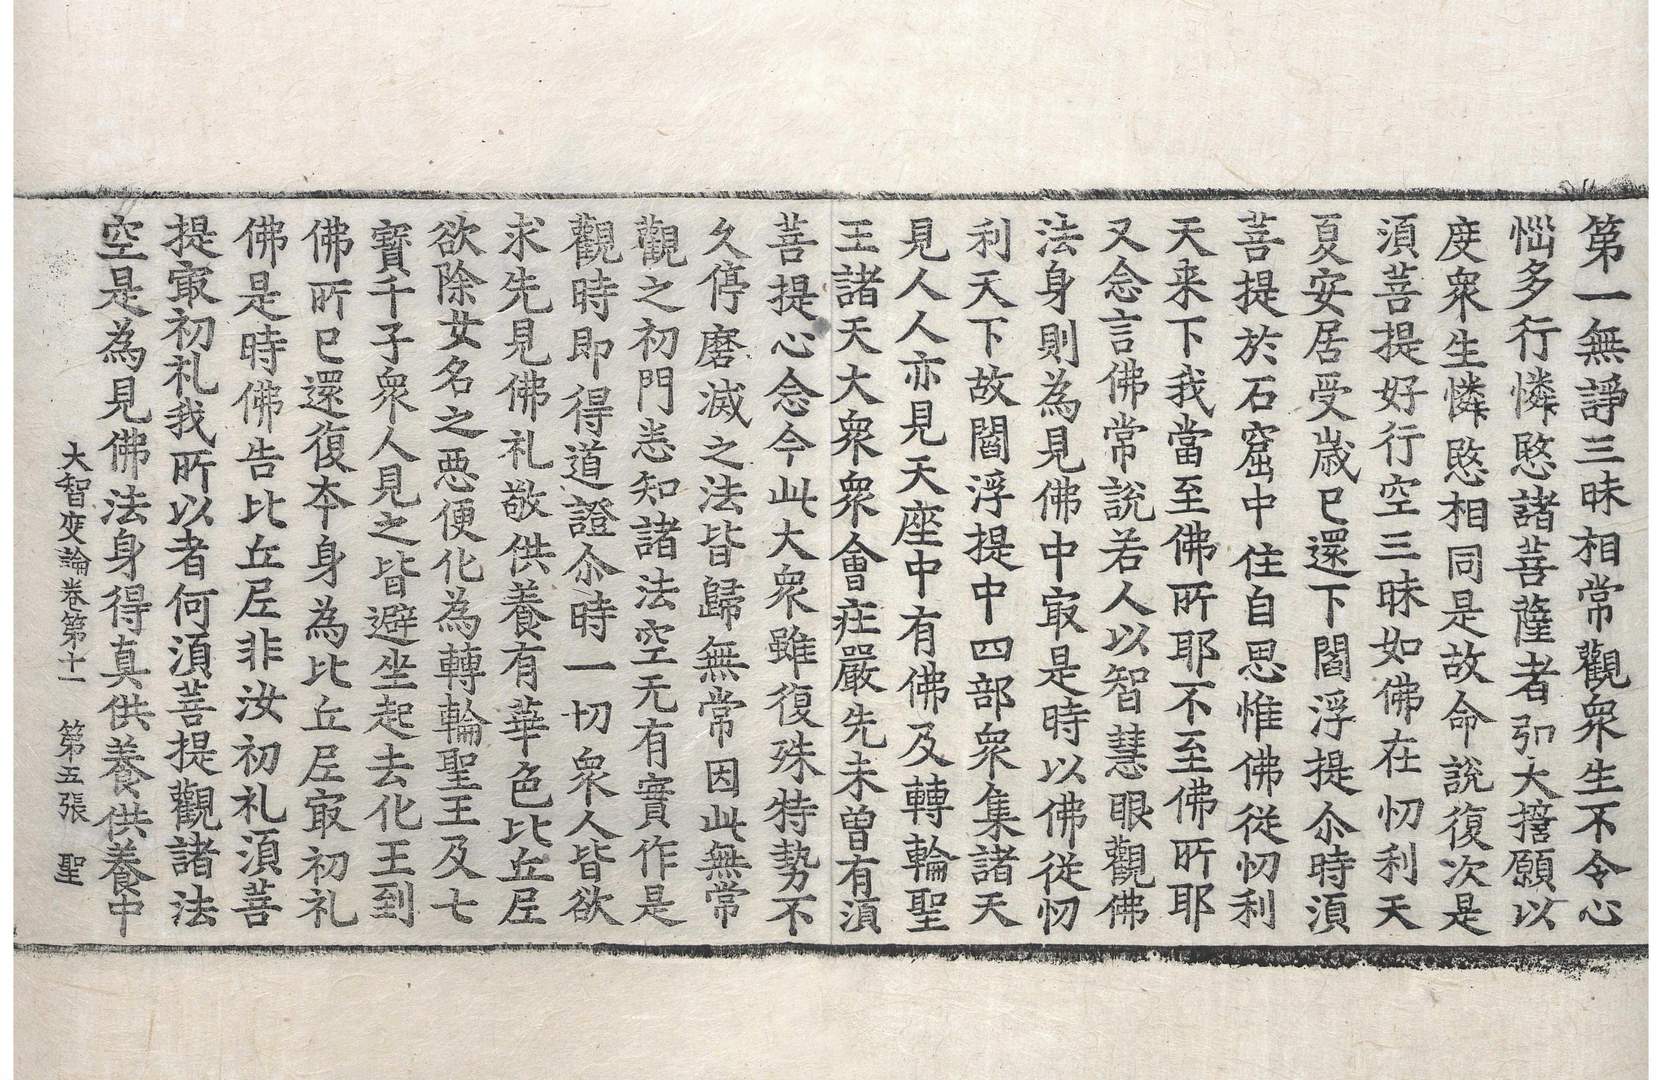 第一無諍三昧相常觀衆生不令心
惱多行憐愍諸菩薩者弘大誓願以
度衆生憐愍相同是故命說復次是
湏菩提好行空三昧如佛在忉利天
夏安居受歲已還下閻浮提尒時湏
菩提於石窟中住自思惟佛從忉利
天来下我當至佛所耶不至佛所耶
又念言佛常說若人以智慧眼觀佛
法身則為見佛中冣是時以佛從忉
利天下故閻浮提中四部衆集諸天
見人人亦見天座中有佛及轉輪聖
王諸天大衆衆會疰嚴先未曾有湏
菩提心念今此大衆雖復殊特勢不
久停磨滅之法皆歸無常因此無常
觀之初門悉知諸法空无有實作是
觀時即得道證尒時一切衆人皆欲
求先見佛礼敬供養有華色比丘尼
欲除女名之惡便化為轉輪聖王及七
寶千子衆人見之皆避坐起去化王到
佛所已還復本身為比丘尼冣初礼
佛是時佛告比丘尼非汝初礼湏菩
提冣初礼我所以者何湏菩提觀諸法
空是為見佛法身得真供養供養中
大智度論卷第十一 第五張 聖